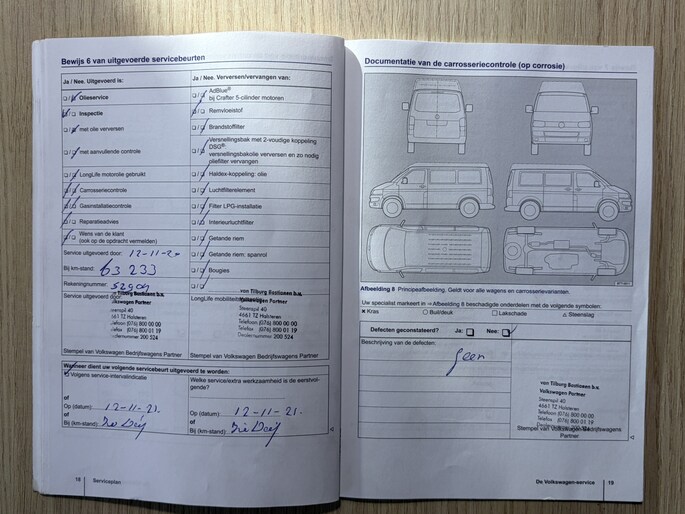 Bewijs 6 van uitgevoerde servicebeurten
Ja / Nee. Uitgevoerd is:
Olieservice
Inspectie
met olie verversen
met aanvullende controle
LongLife motorolie gebruikt
Carrosseriecontrole
Gasinstallatiecontrole
Reparatieadvies
Wens van de klant
(ook op de opdracht vermelden)
Ja / Nee. Verversen/vervangen van:
AdBlue®
bij Crafter 5-cilinder motoren
Remvloeistof
Brandstoffilter
Versnellingsbak met 2-voudige koppeling
DSG®:
versnellingsbakolie verversen en zo nodig
oliefilter vervangen
Haldex-koppeling: olie
Luchtfilterelement
Filter LPG-installatie
Interieurluchtfilter
Getande riem
Getande riem: spanrol
Bougies
Service uitgevoerd door: 12-11-20
Bij km-stand: 63 233
Rekeningnummer:
Service uitgevoerd door:
von Tilburg Bastiaen b.v.
Volkswagen Partner
4661 TZ Halsteren
Telefoon (076) 800 00 00
(076) 800 01 19
Dealernummer 200 524
Stempel van Volkswagen Bedrijfswagens Partner
von Tilburg Bastiaen b.v.
Volkswagen Partner
Steenspil 40
4661 TZ Halsteren
Telefoon (076) 800 00 00
Telefax (076) 800 01 19
Dealernummer 200 524
Stempel van Volkswagen Bedrijfswagens Partner
Wanneer dient uw volgende servicebeurt uitgevoerd te worden:
Volgens service-intervalindicatie
of
Op (datum): 12-11-21.
of
Bij (km-stand):
Welke service/extra werkzaamheid is de eerstvol-
gende?
Op (datum): 12-11-21.
of
Bij (km-stand):
18 Serviceplan
Documentatie van de carrosseriecontrole (op corrosie)
Afbeelding 8 Principeafbeelding. Geldt voor alle wagens en carrosserievarianten.
Uw specialist markeert in ⇒ Afbeelding 8 beschadigde onderdelen met de volgende symbolen:
× Kras ○ Buil/deuk □ Lakschade △ Steenslag
Defecten geconstateerd? Ja: Nee:
Beschrijving van de defecten:
geen
von Tilburg Bastiaen b.v.
Volkswagen Partner
Steenspil 40
4661 TZ Halsteren
Telefoon (076) 800 00 00
Telefax (076) 800 01 19
Dealernummer 200 524
Stempel van Volkswagen Bedrijfswagens
Partner
De Volkswagen-service 19